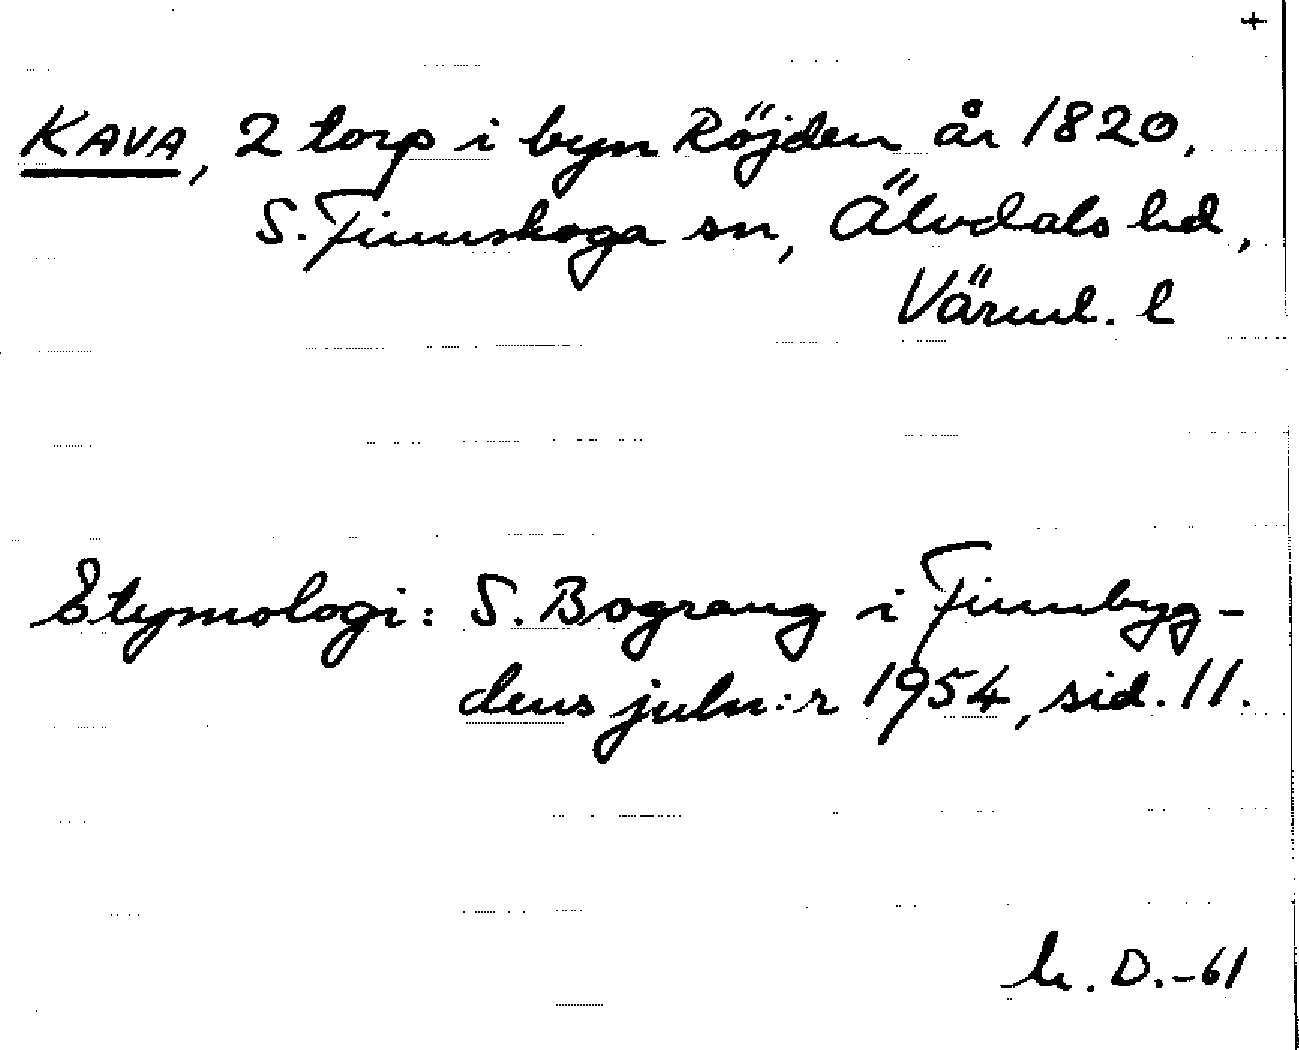 +
KAVA, 2 torp i byn Röjden år 1820,
S. Finnskoga sn, Älvdals hd,
Värml. l
Etymologi: S. Bograng i Finnbyg-
dens juln:r 1954, sid. 11.
h. D.-61